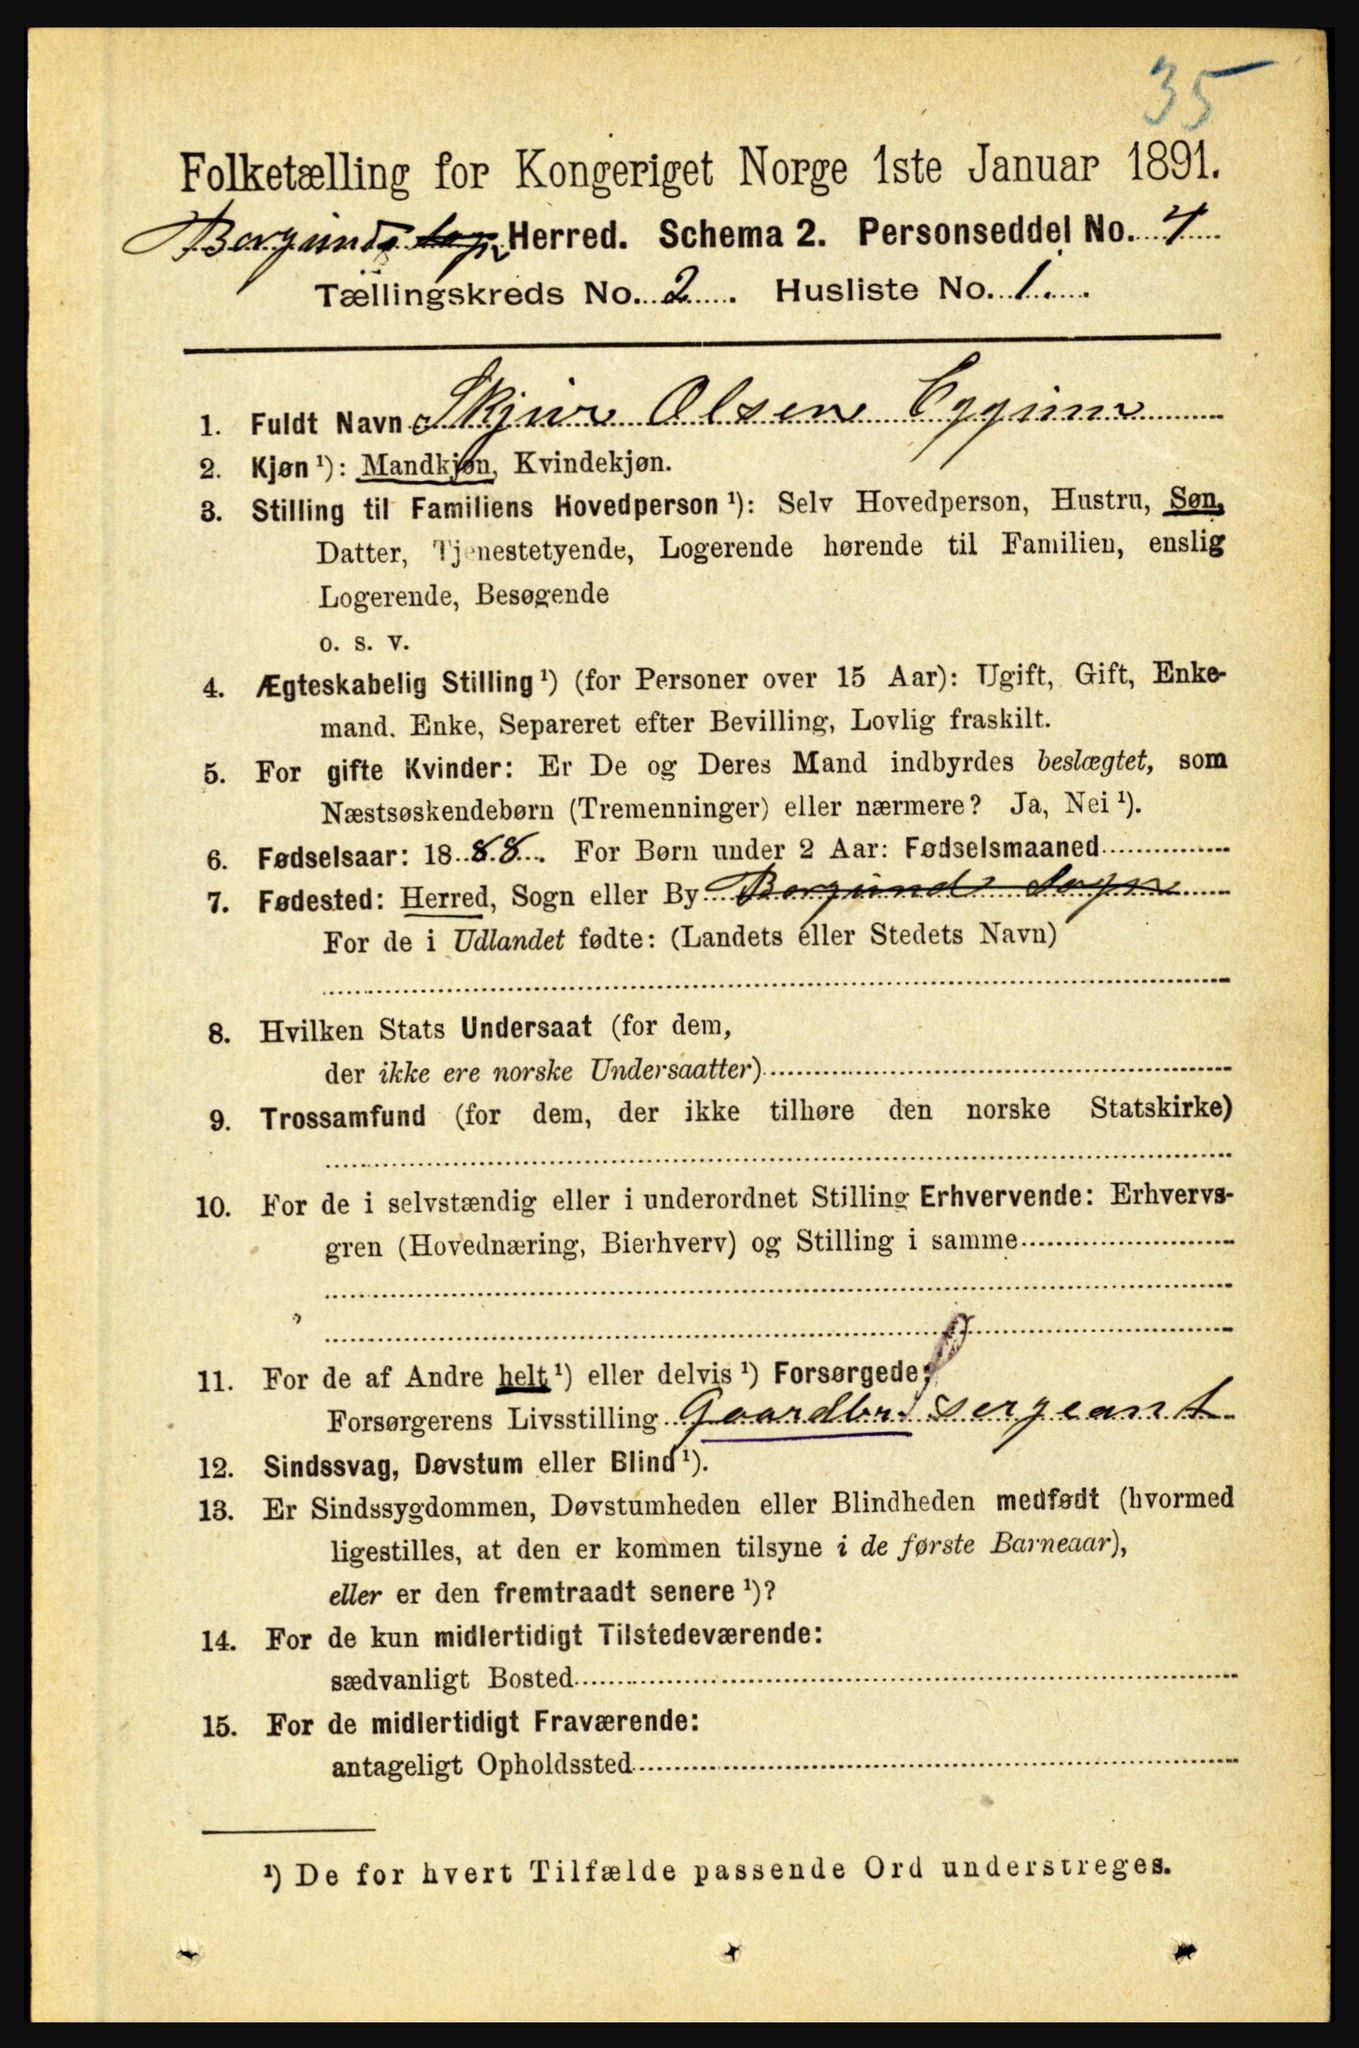 35
Folketælling for Kongeriget Norge 1ste Januar 1891.
Borgunds Sogn Herred. Schema 2. Personseddel No. 4
Tællingskreds No. 2. Husliste No. 1.
1. Fuldt Navn Skjur Olsen Eggum
2. Kjøn ¹): Mandkjøn, Kvindekjøn.
3. Stilling til Familiens Hovedperson ¹): Selv Hovedperson, Hustru, Søn,
Datter, Tjenestetyende, Logerende hørende til Familien, enslig
Logerende, Besøgende
o. s. v.
4. Ægteskabelig Stilling ¹) (for Personer over 15 Aar): Ugift, Gift, Enke-
mand. Enke, Separeret efter Bevilling, Lovlig fraskilt.
5. For gifte Kvinder: Er De og Deres Mand indbyrdes beslægtet, som
Næstsøskendebørn (Tremenninger) eller nærmere? Ja, Nei ¹).
6. Fødselsaar: 1888. For Børn under 2 Aar: Fødselsmaaned
7. Fødested: Herred, Sogn eller By Borgunds Sogn
For de i Udlandet fødte: (Landets eller Stedets Navn)
8. Hvilken Stats Undersaat (for dem,
der ikke ere norske Undersaatter)
9. Trossamfund (for dem, der ikke tilhøre den norske Statskirke)
10. For de i selvstændig eller i underordnet Stilling Erhvervende: Erhvervs-
gren (Hovednæring, Bierhverv) og Stilling i samme
11. For de af Andre helt ¹) eller delvis ¹) Forsørgede:
Forsørgerens Livsstilling Gaardbr. Sergeant
12. Sindssvag, Døvstum eller Blind ¹).
13. Er Sindssygdommen, Døvstumheden eller Blindheden medfødt (hvormed
ligestilles, at den er kommen tilsyne i de første Barneaar),
eller er den fremtraadt senere ¹)?
14. For de kun midlertidigt Tilstedeværende:
sædvanligt Bosted
15. For de midlertidigt Fraværende:
antageligt Opholdssted
¹) De for hvert Tilfælde passende Ord understreges.